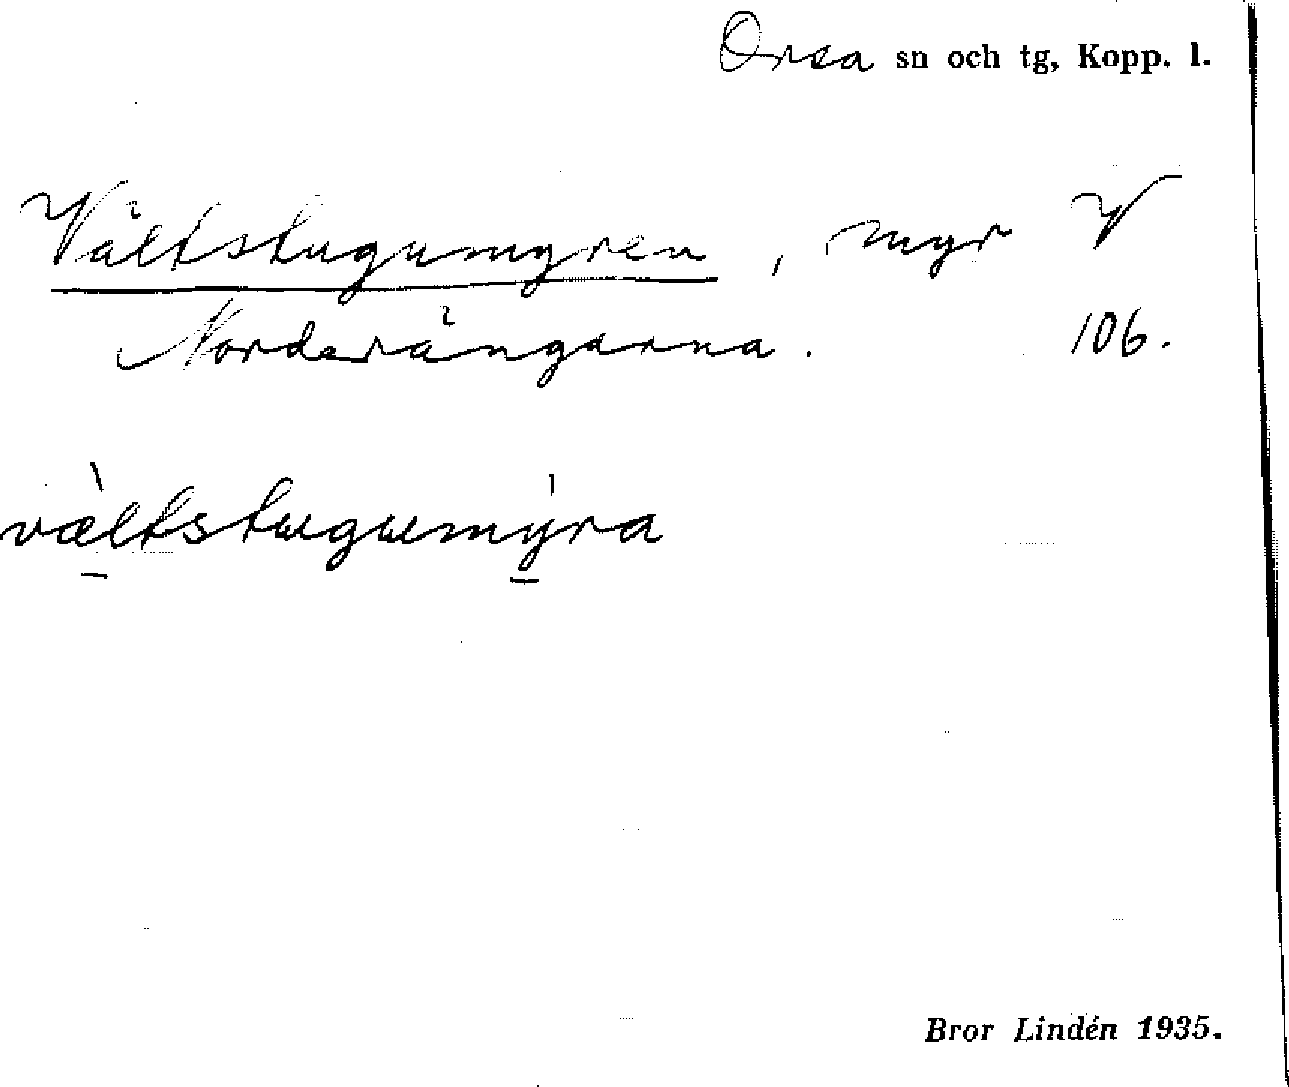 Orsa sn och tg, Kopp. l.
Vältstugumyren, myr V
Norderängarna. 106.
væltstugumýra
Bror Lindén 1935.